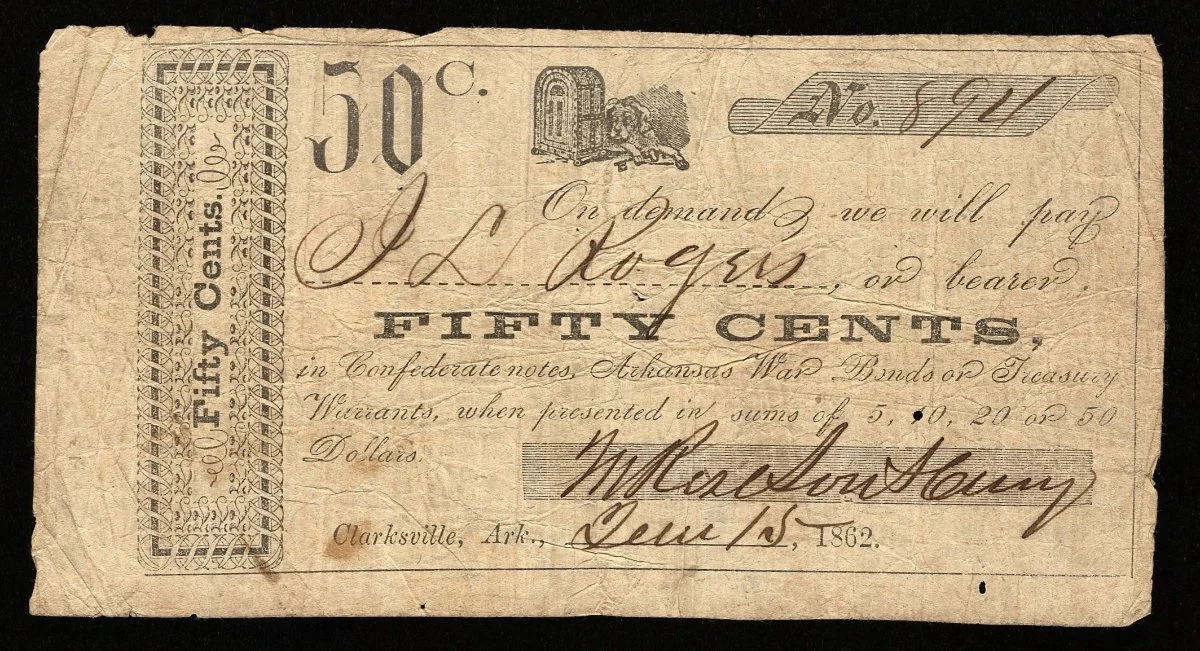 50 C.
No. 894
On demand we will pay
J L Rogers, or bearer.
FIFTY CENTS,
in Confederate notes, Arkansas War Bonds or Treasury
Warrants, when presented in sums of 5, 10, 20 or 50
Dollars.
M Rose Son
Clarksville, Ark., 15, 1862.
Fifty Cents.